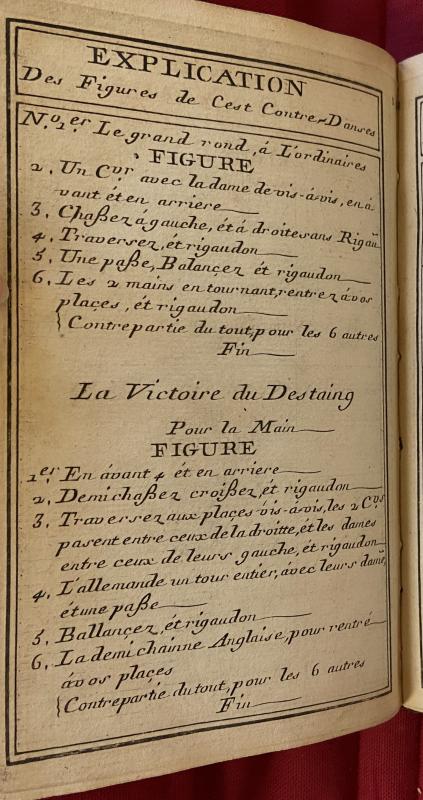 EXPLICATION
Des Figures de Cest Contre-Danses
N.o 1.er Le grand rond, á L'ordinaires
FIGURE
2. Un C.vr avec la dame de vis-à-vis, en á-
vant ét en arriere
3. Chaßez á gauche, ét á droite sans Rigau
4. Traversez, ét rigaudon
5. Une paße, Balançez ét rigaudon
6. Les 2 mains en tournant, rentrez á vos
plaçes, ét rigaudon
Contrepartie du tout, pour les 6 autres
Fin
La Victoire du Destaing
Pour la Main
FIGURE
1.er En ávant 4 ét en arriere
2. Demi chaßez croißez, ét rigaudon
3. Traversez aux plaçes vis-á-vis, les 2 C.vrs
pasent entre ceux de la droitte, ét les dames
entre ceux de leurs gauche, ét rigaudon
4. L'allemande un tour entier, avec leurs dame,
ét une paße
5. Ballançez, ét rigaudon
6. La demi chainne Anglaise, pour rentré
á vos plaçes
Contrepartie du tout, pour les 6 autres
Fin